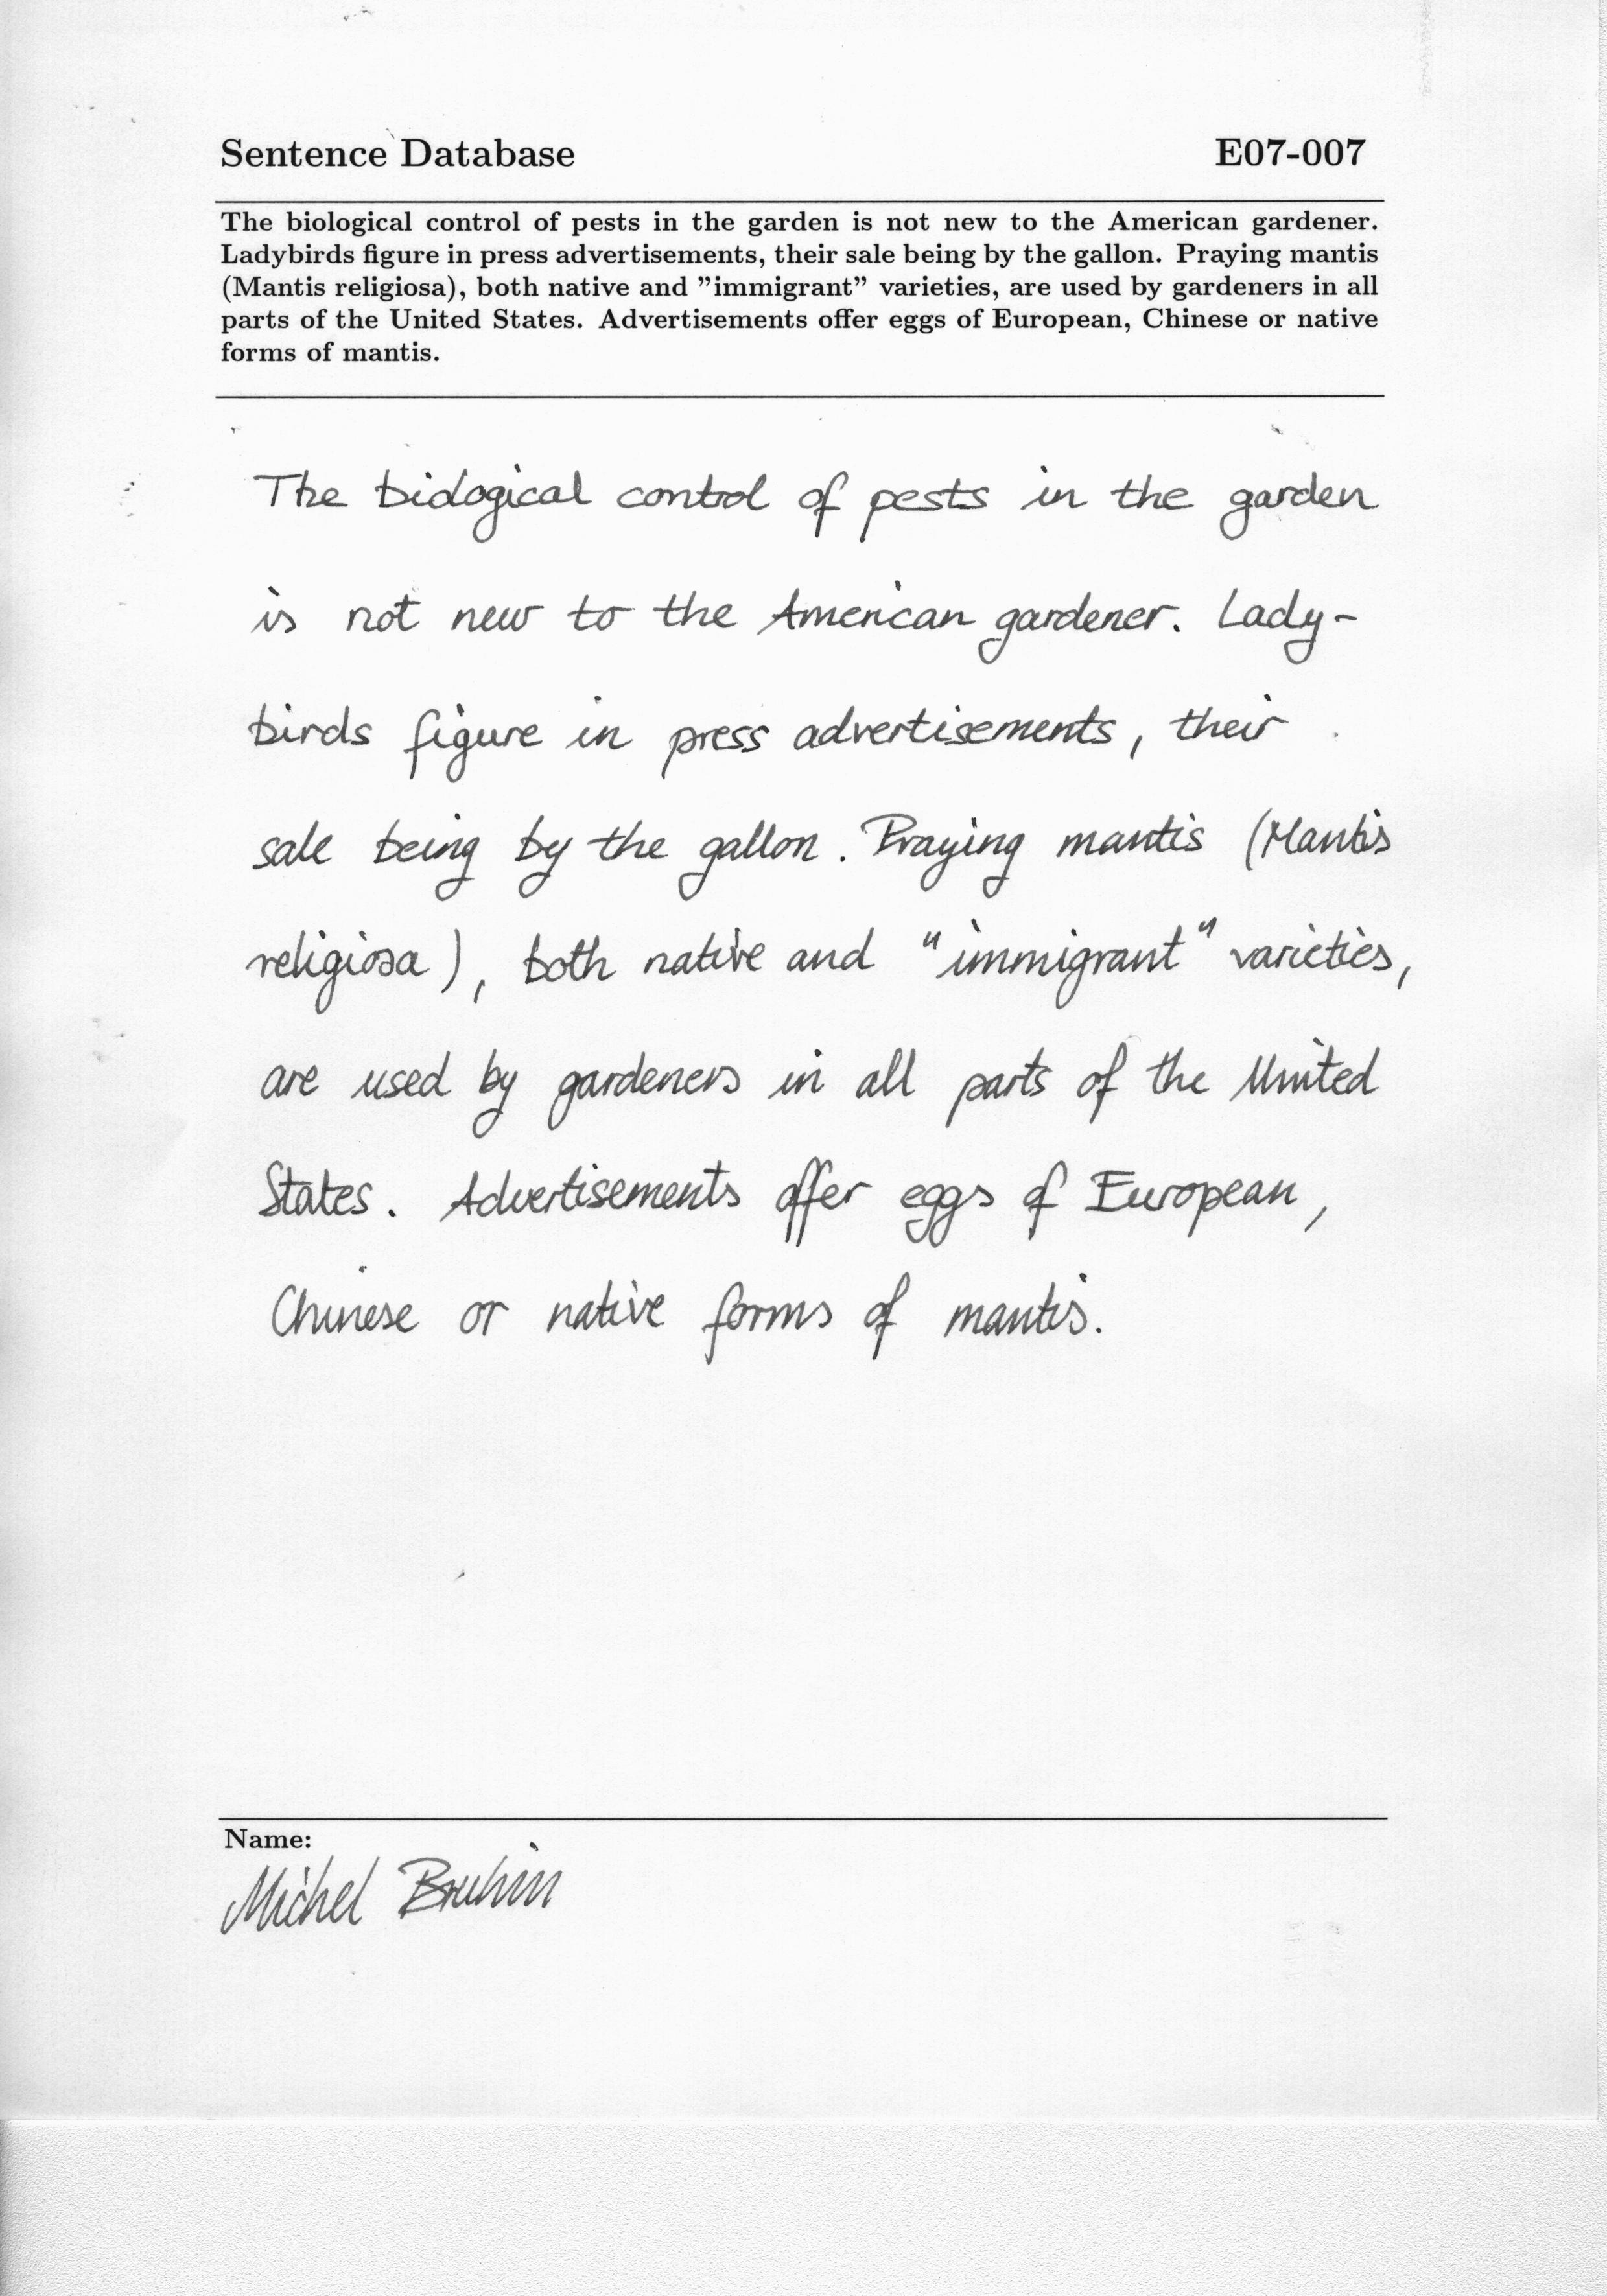 Sentence Database E07-007
The biological control of pests in the garden is not new to the American gardener.
Ladybirds figure in press advertisements, their sale being by the gallon. Praying mantis
(Mantis religiosa), both native and "immigrant" varieties, are used by gardeners in all
parts of the United States. Advertisements offer eggs of European, Chinese or native
forms of mantis.
The biological control of pests in the garden
is not new to the American gardener. Lady-
birds figure in press advertisements, their
sale being by the gallon. Praying mantis (Mantis
religiosa), both native and "immigrant" varieties,
are used by gardeners in all parts of the United
States. Advertisements offer eggs of European,
Chinese or native forms of mantis.
Name:
Michel Bruhin